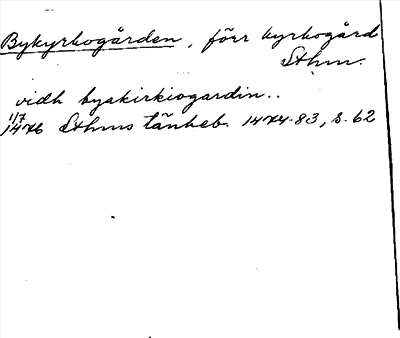 Bykyrkogården, förr kyrkogård
Sthm.
vidh byakirkiogardin..
1/7
1476 Sthms tänkeb. 1474-83, s. 62